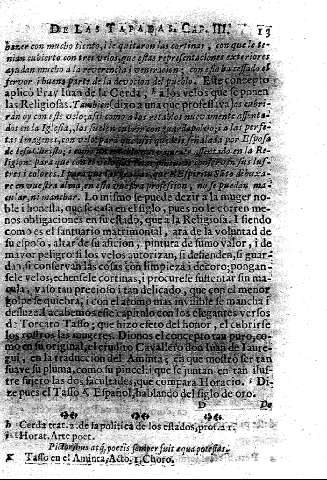 DE LAS TAPADAS. CAP. III. 13
hazer con mucho tiento, i le quitaron las cortinas, con que le te-
nian cubierto con tres velos, que estas representaciones exteriores
ayudan mucho a la reverencia, i veneracion, con ella
fervor i buena parte de la devocion del pueblo. Este concepto
aplicò Fray Iuan de la Cerda, a los velos que se ponen
las Religiosas. Tambien (dize a una que professava) os cubri-
ràn oy con este velo, assi como a los retablos nuevamente assenta-
dos en la Iglesia, los suelen cubrir con
imagenes, con velo para que seays señalada por Esposa
de Iesu Christo, assentado en la Re-
ligion: para que con el
tres i colores. I para que que el Espiritu Santo deboxa-
re en vuestra alma, en esta vuestra profession, no se puedan ma-
cular, ni manchar. Lo mismo se puede dezir a la muger no-
ble i honesta, que se casa en el siglo, pues no le corren me-
nos obligaciones en su estado, que a la Religiosa. I siendo
como es el santuario matrimonial, ara de la voluntad de
su esposo, altar de su aficion, pintura de sumo valor, i de
mayor peligro si los velos autorizan, i defienden, i guar-
dan, i conservan las cosas con limpieza i decoro; pongan-
sele velos, echensele cortinas, i procurese sustentar sin ma-
cula, vaso tan precioso i tan delicado, que con el menor
golpe se quiebra, i con el atomo mas invisible se mancha i
desluze. I acabemos este capitulo con los elegantes versos
de Torcato Tasso; que hizo efeto del honor, el cubrirse
los rostros las mugeres. Dionos el concepto tan puro, co-
mo en su original, el erudito Cavallero don Iuan de Iaure-
gui, en la traduccion del Aminta; en que mostrò ser tan
suave su pluma, como su pincel: i que se juntan en tan ilus-
tre sujeto las dos facultades, que compara Horacio. Di-
ze pues el Tasso Español, hablando del siglo de oro.
D De
h Cerda trat. 2. de la politica de los estados, prof. c. 1.
i Horat. Arte poet.
Pictoribus atq; poetis semper fuit æqua potestas.
K Tasso en el Aminta, Acto, 1, Choro.